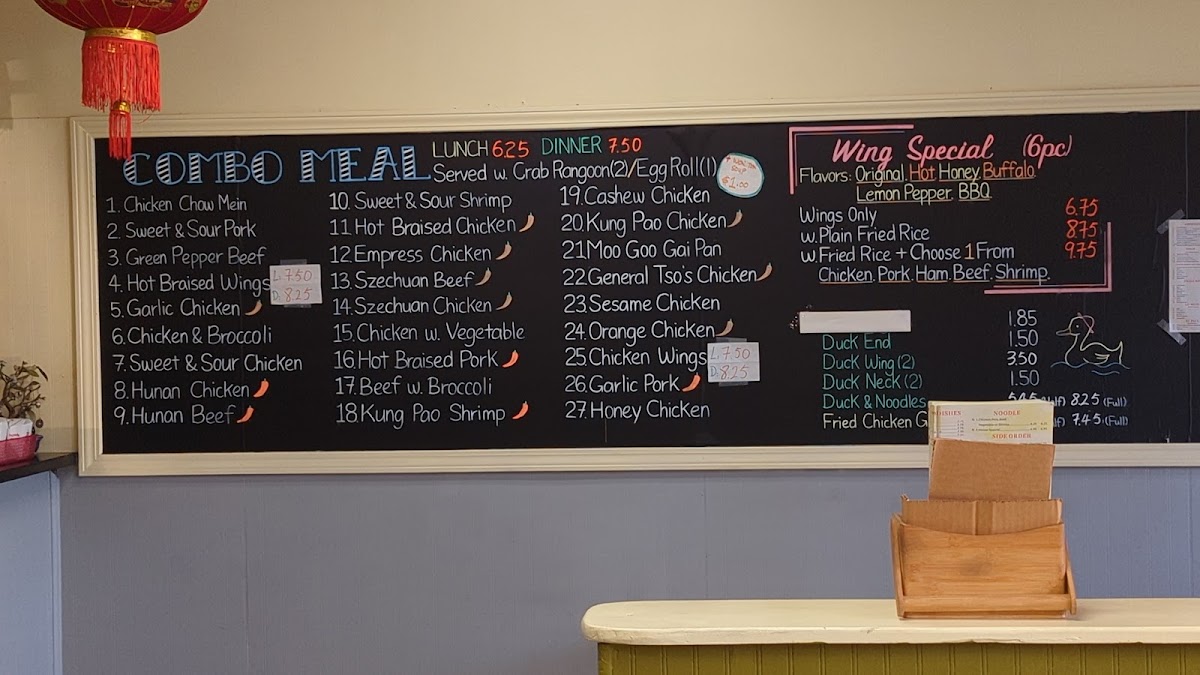 COMBO MEAL
LUNCH 6.25 DINNER 7.50
Served w. Crab Rangoon(2)/Egg Roll(1)
$1.00
1. Chicken Chow Mein
2. Sweet & Sour Pork
3. Green Pepper Beef
4. Hot Braised Wings
L: 7.50
D: 8.25
5. Garlic Chicken
6. Chicken & Broccoli
7. Sweet & Sour Chicken
8. Hunan Chicken
9. Hunan Beef
10. Sweet & Sour Shrimp
11 Hot Braised Chicken
12 Empress Chicken
13. Szechuan Beef
14. Szechuan Chicken
15. Chicken w. Vegetable
16. Hot Braised Pork
17. Beef w. Broccoli
18. Kung Pao Shrimp
19. Cashew Chicken
20. Kung Pao Chicken
21. Moo Goo Gai Pan
22. General Tso's Chicken
23. Sesame Chicken
24. Orange Chicken
25. Chicken Wings
L: 7.50
D: 8.25
26. Garlic Pork
27. Honey Chicken
Wing Special (6pc)
Flavors: Original, Hot Honey, Buffalo,
Lemon Pepper, BBQ
Wings Only 6.75
w. Plain Fried Rice 8.75
w. Fried Rice + Choose 1 From 9.75
Chicken, Pork, Ham, Beef, Shrimp.
1.85
Duck End 1.50
Duck Wing (2) 3.50
Duck Neck (2) 1.50
Duck & Noodles 8.25 (Full)
Fried Chicken 7.45 (Full)
NOODLE
SIDE ORDER